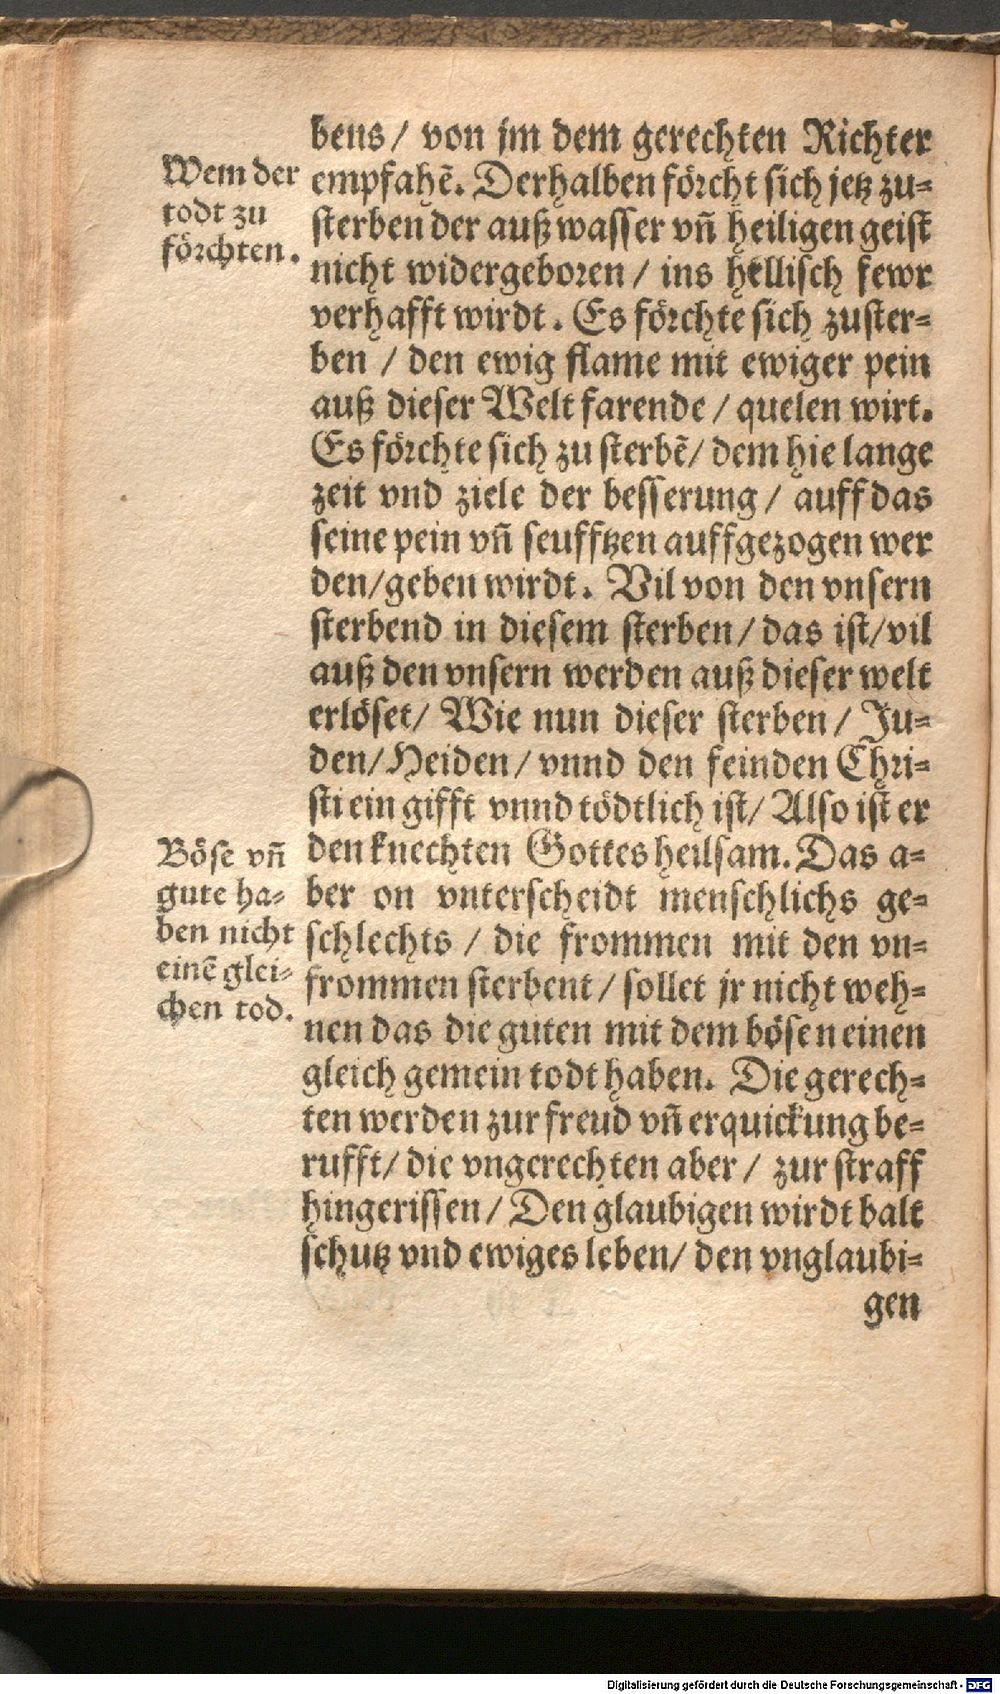 bens / von jm dem gerechten Richter
Wem der
todt zu
förchten.
empfahē. Derhalben förcht sich jetz zu=
sterben der auß wasser vñ heiligen geist
nicht widergeboren / ins hellisch fewr
verhafft wirdt. Es förchte sich zuster=
ben / den ewig flame mit ewiger pein
auß dieser Welt farende / quelen wirt.
Es förchte sich zu sterbē / dem hie lange
zeit vnd ziele der besserung / auff das
seine pein vñ seufftzen auffgezogen wer
den / geben wirdt. Vil von den vnsern
sterbend in diesem sterben / das ist / vil
auß den vnsern werden auß dieser welt
erlöset / Wie nun dieser sterben / Ju=
den / Heiden / vnnd den feinden Chri=
sti ein gifft vnnd tödtlich ist / Also ist er
den knechten Gottes heilsam. Das a=
Böse vñ
gute ha=
ben nicht
einē glei=
chen tod.
ber on vnterscheidt menschlichs ge=
schlechts / die frommen mit den vn=
frommen sterbent / sollet jr nicht weh=
nen das die guten mit dem bösen einen
gleich gemein todt haben. Die gerech=
ten werden zur freud vñ erquickung be=
rufft / die vngerechten aber / zur straff
hingerissen / Den glaubigen wirdt balt
schutz vnd ewiges leben / den vnglaubi=
gen
Digitalisierung gefördert durch die Deutsche Forschungsgemeinschaft - DFG